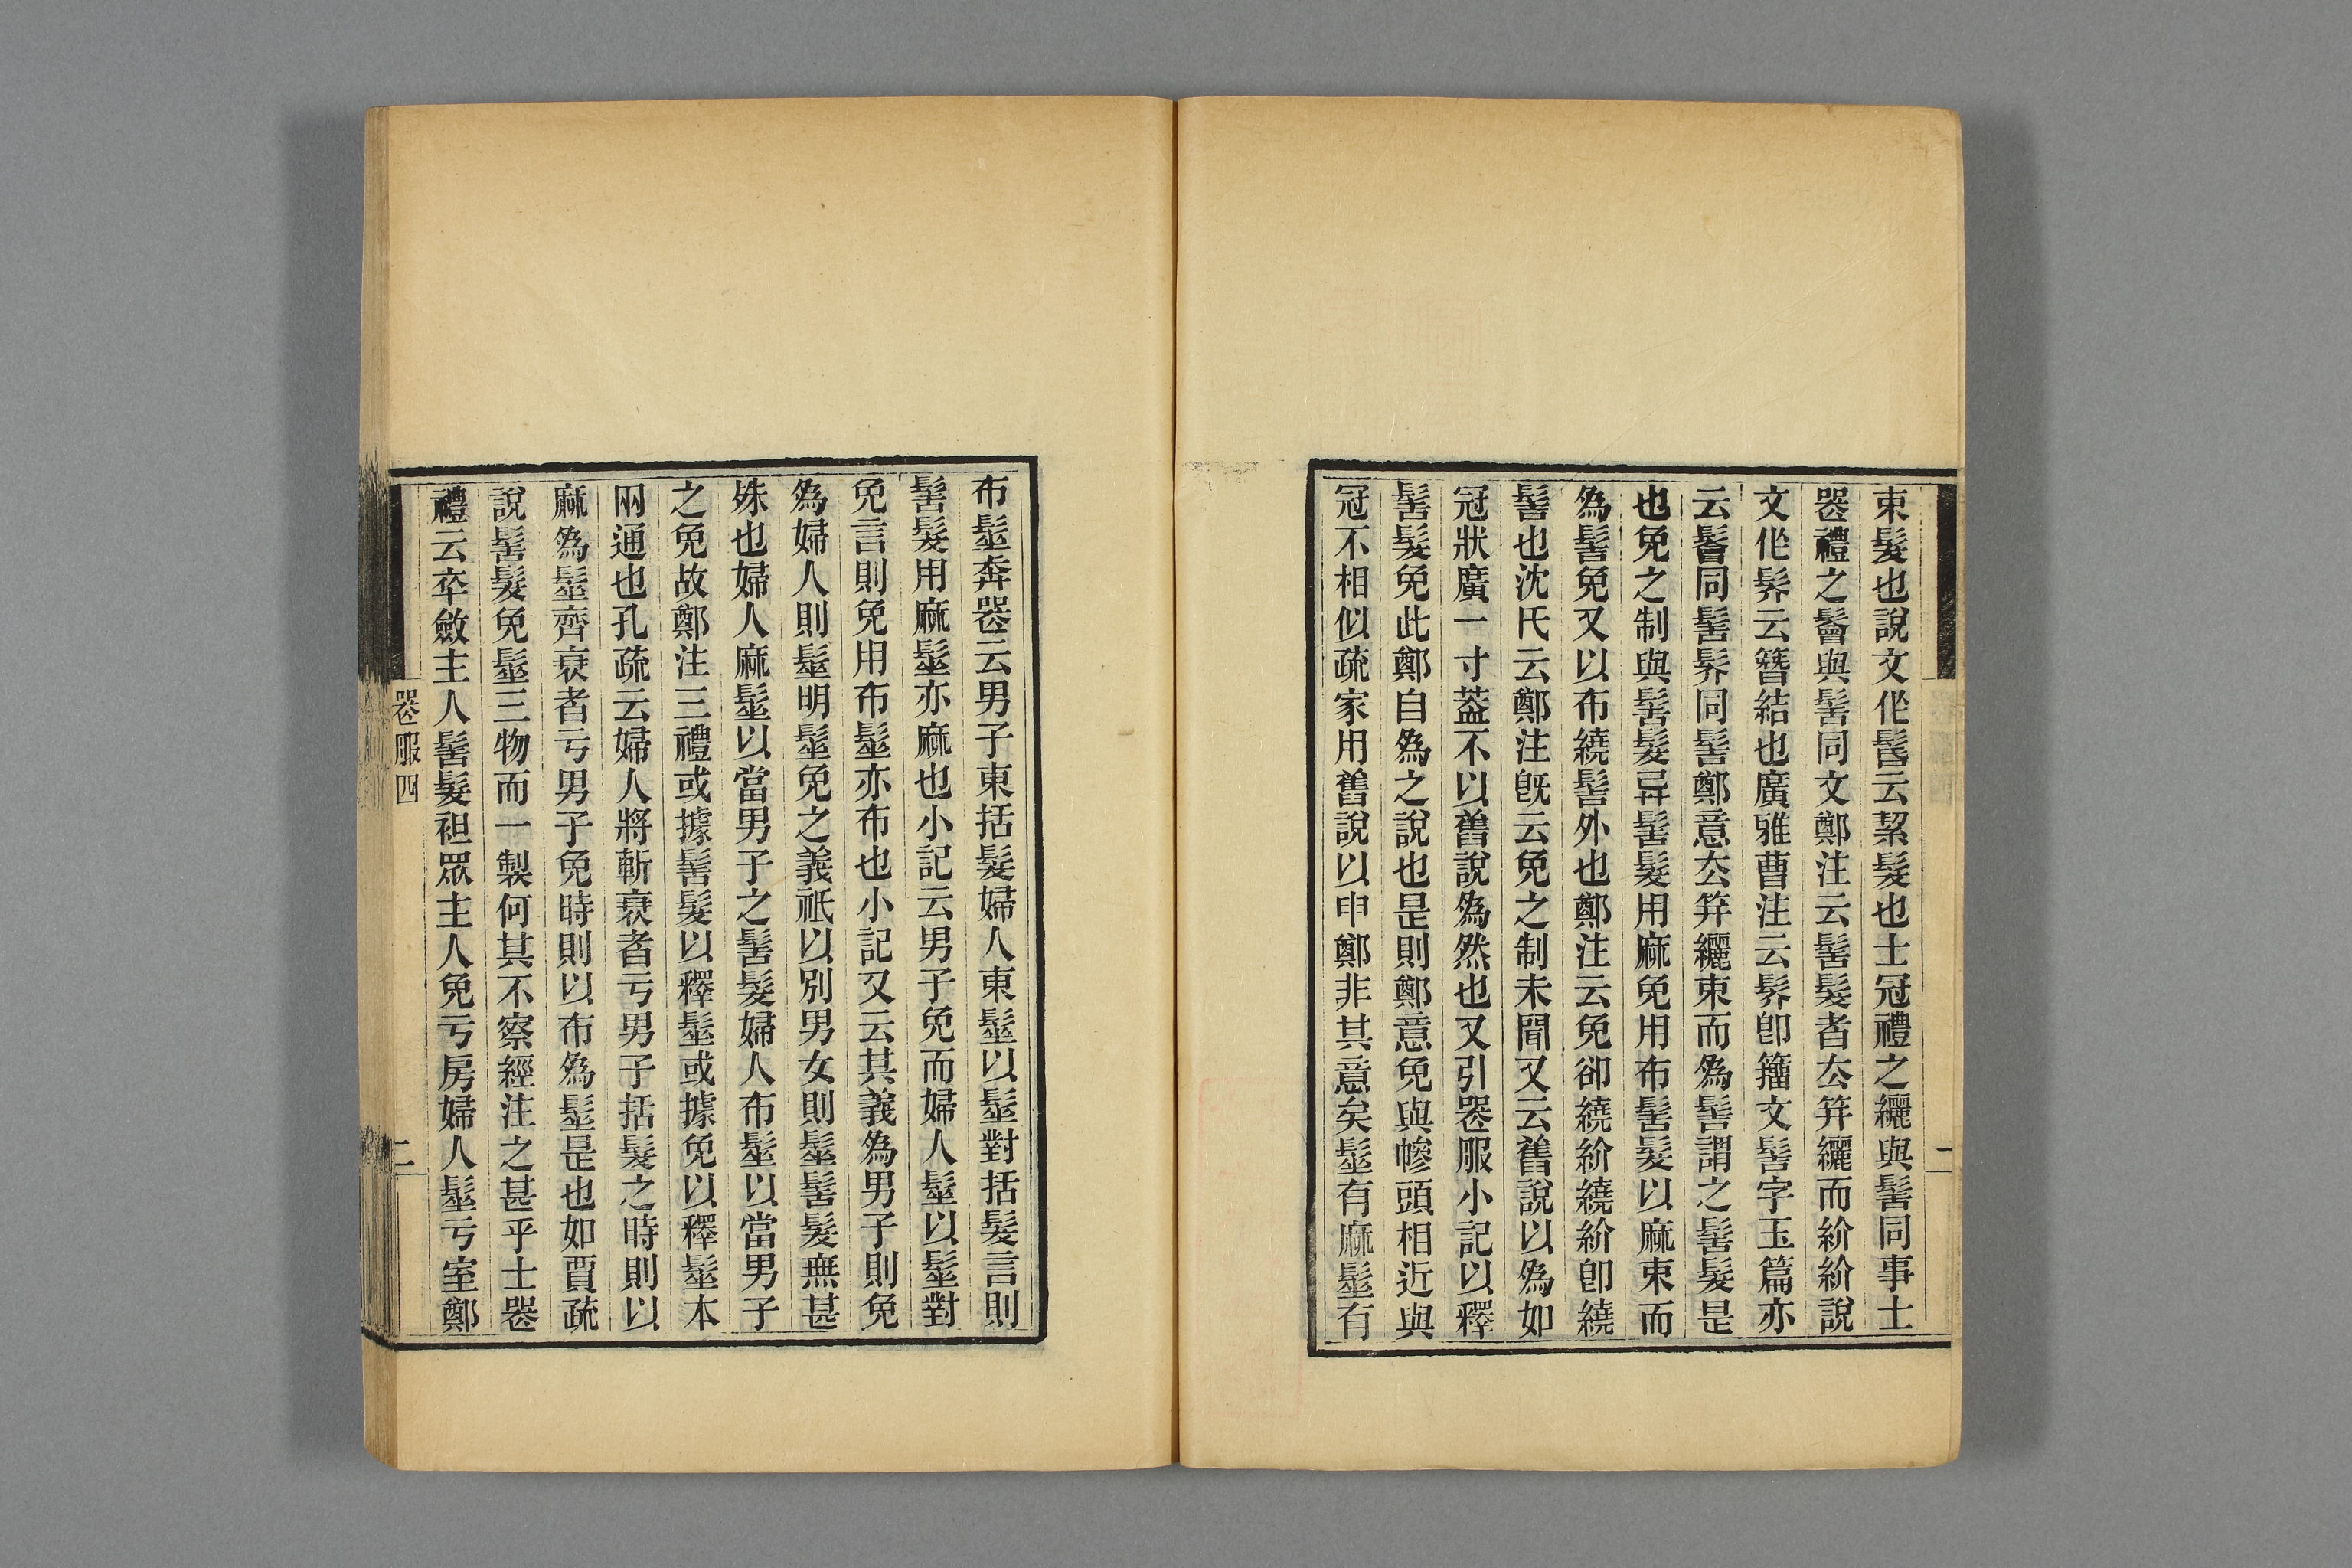 束髮也說文作髺云絜髮也士冠禮之纚與髺同事士
喪禮之鬠與髺同文鄭注云髺髮者去笄纚而紒紒說
文作髤云簪結也廣雅曹注云髤卽籀文髺字玉篇亦
云鬠同髺髤同髺鄭意去笄纚束而為髺謂之髺髮是
也免之制與髺髮異髺髮用麻免用布髺髮以麻束而
為髺免又以布繞髺外也鄭注云免卻繞紒繞紒卽繞
髺也沈氏云鄭注旣云免之制未聞又云舊說以為如
冠狀廣一寸葢不以舊說為然也又引喪服小記以釋
髺髮免此鄭自為之說也是則鄭意免與幓頭相近與
冠不相似疏家用舊說以申鄭非其意矣髽有麻髽有
二
布髽奔喪云男子東括髮婦人東髽以髽對括髮言則
髺髮用麻髽亦麻也小記云男子免而婦人髽以髽對
免言則免用布髽亦布也小記又云其義為男子則免
為婦人則髽明髽免之義祇以別男女則髽髺髮無甚
殊也婦人麻髽以當男子之髺髮婦人布髽以當男子
之免故鄭注三禮或據髺髮以釋髽或據免以釋髽本
兩通也孔疏云婦人將斬衰者亏男子括髮之時則以
麻為髽齊衰者亏男子免時則以布為髽是也如賈疏
說髺髮免髽三物而一製何其不察經注之甚乎士喪
禮云卒斂主人髺髮袒眾主人免亏房婦人髽亏室鄭
喪服四
二